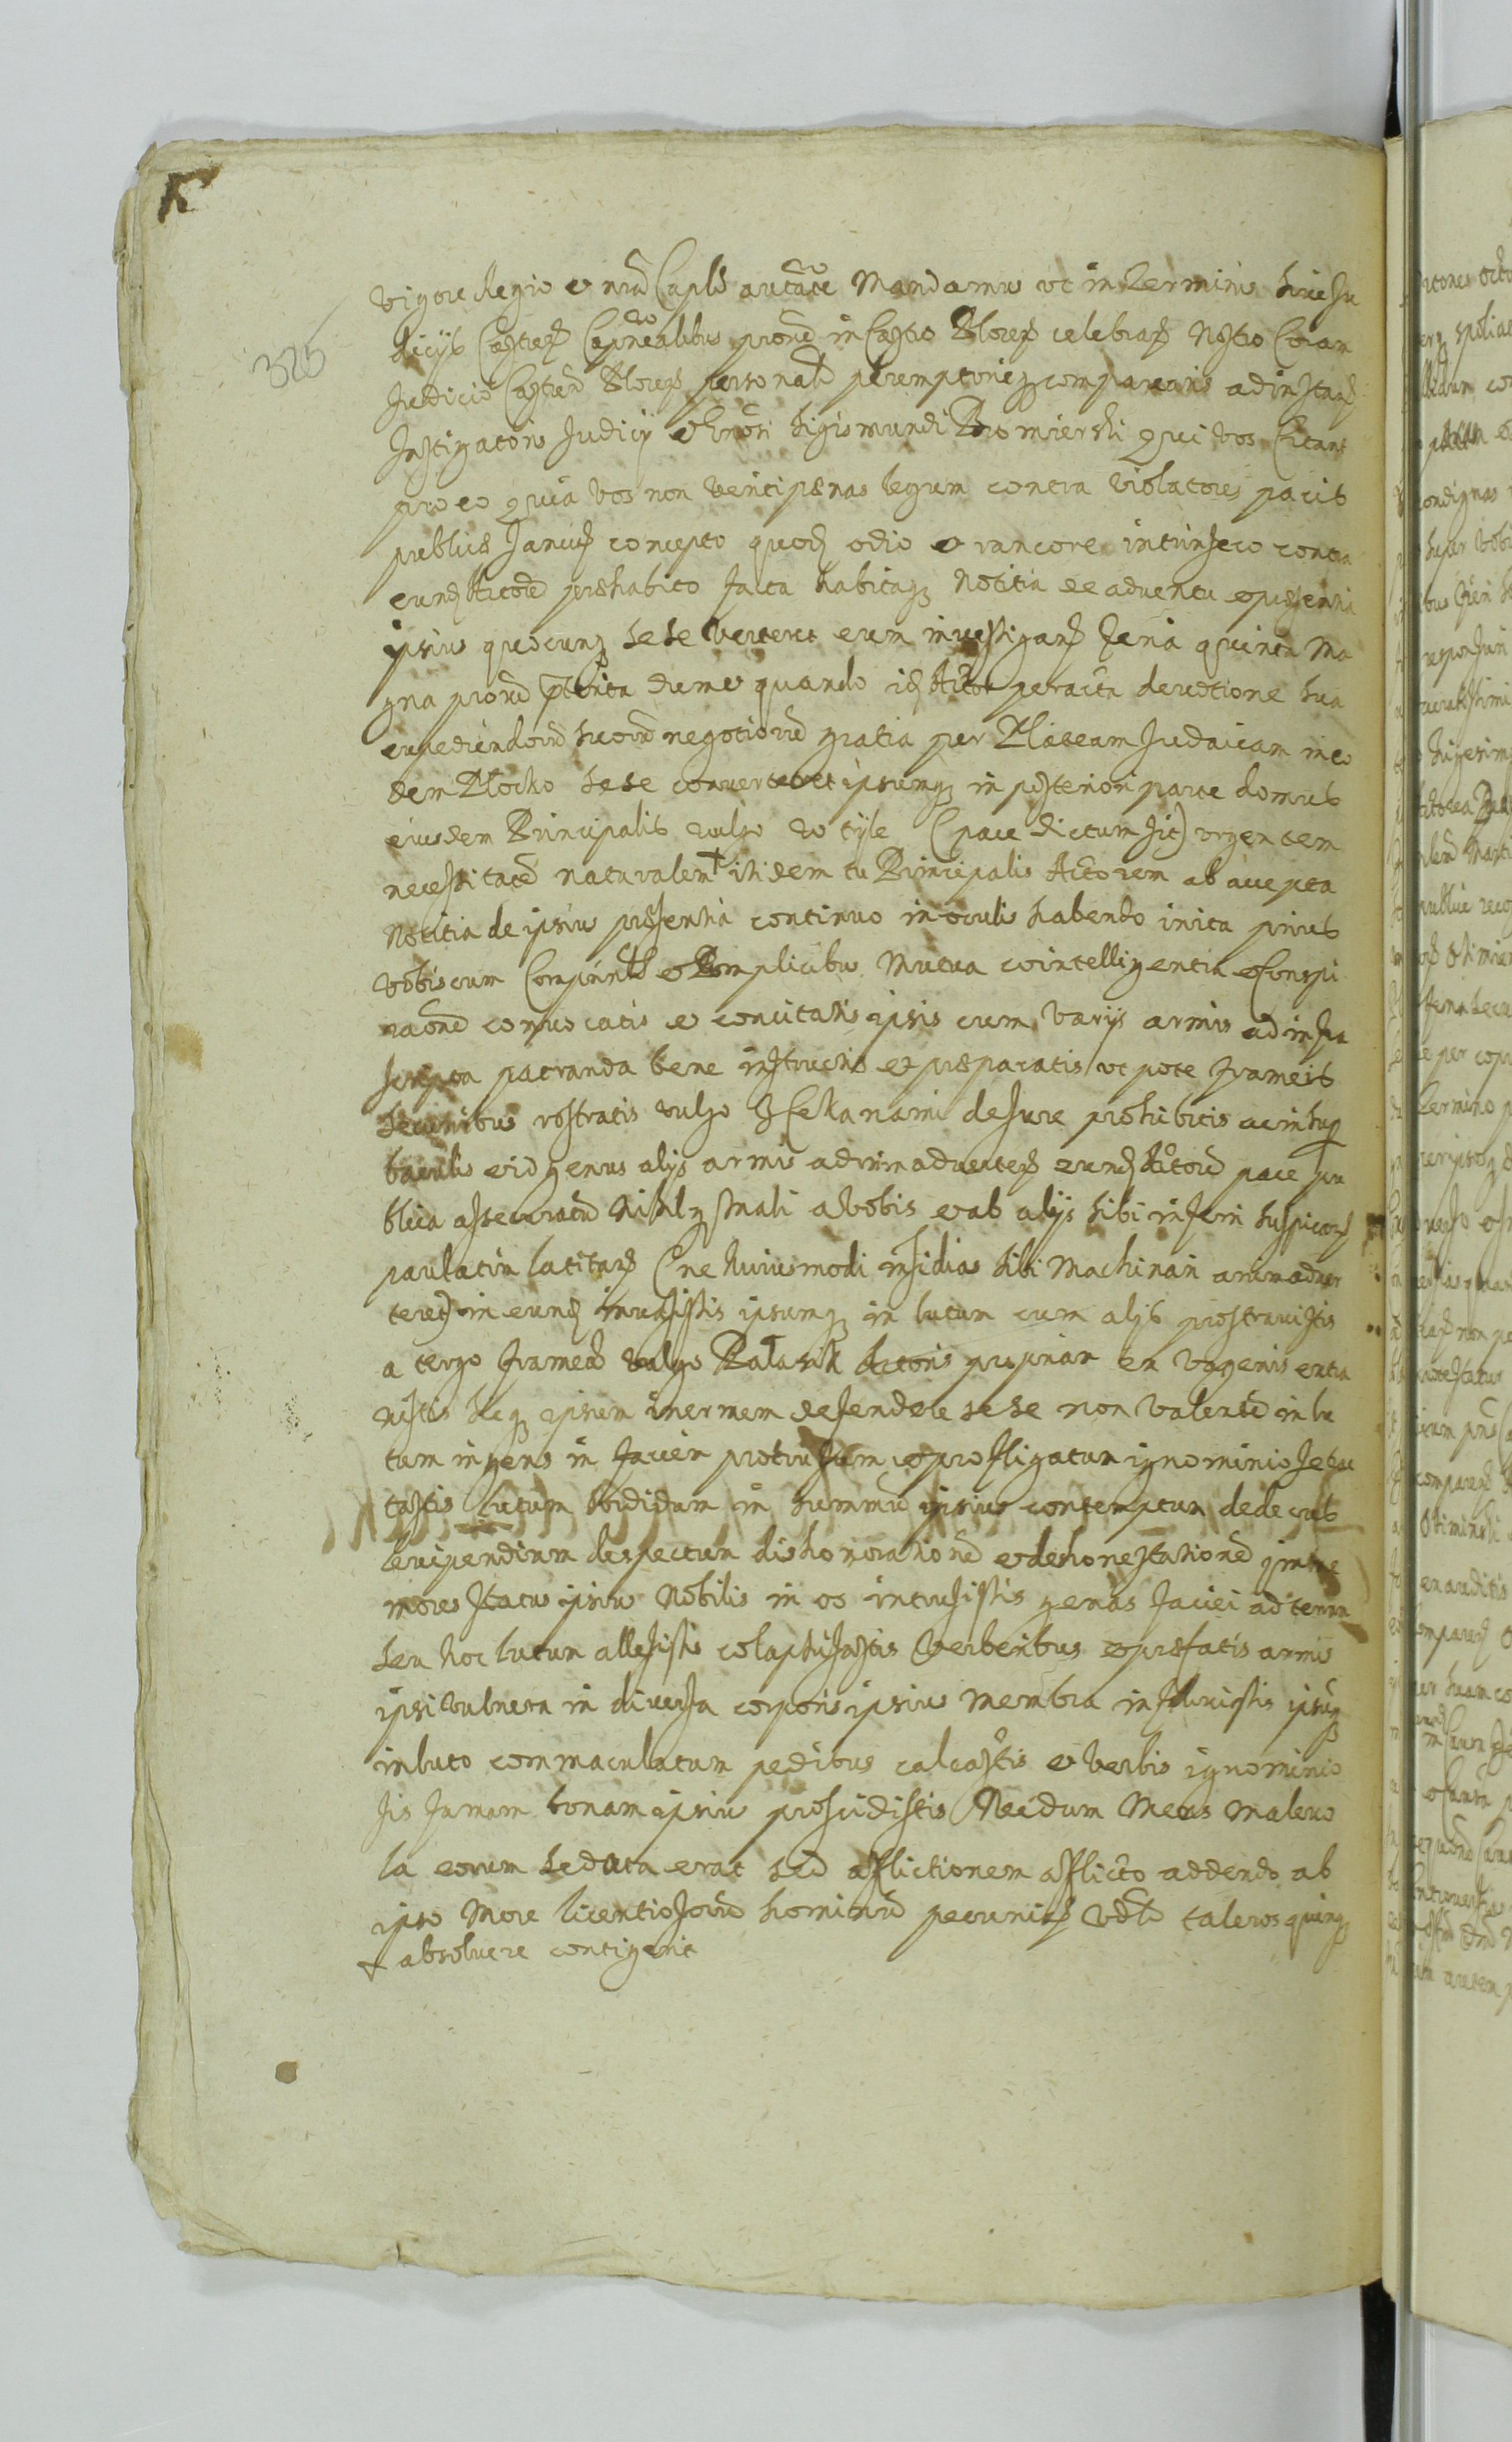 325
vigore Regio et nrã Caplĩs authãte Mandamus ut in Terminis sive Ju
dicijs Castreñ Capnealibus proxe in Castro Ploceñ celebrañ Nostro Coram
Judicio Castreñ Ploceñ personalr peremptorieq compareatis ad instañ
Instigatoris Judicij et Gnõsi Sigismundi Bromierski qui vos Citant
pro eo quia vos non veriti pænas legum contra violatores pacis
publicæ sancit concepto quod odio et rancore intrinseco contra
eund Actore præhabito facta habitaq Notitia de adventu et præsentia
ipsius quocunq sese verteret eum investigañ feria quinta Ma
gna proxe præterita dum et quando id Actor peracta devotione sua
expediendorũ suorũ negotiorũ gratia per Plateam Judaicam in eo
dem Plocko sese converteret ipsumq in posteriori parte domus
eiusdem Principalis vulgo w tyle (pace dictum sit) urgentem
necessitatẽ naturalem + ibidem tu Principalis Actorem ab accepta
Notitia de ipsius præsentia continuo in oculis habendo inita prius
vobiscum Comprinlbs et Complicibus Mutua cointelligentia et Conspi
raõne convocatis et concitatis ipsis cum varijs armis ad infra
scripta patranda bene instructis et præparatis ut pote frameis
securibus rostratis vulgo Czekanami de Jure prohibitis ac insup
baculis eid genus alijs armis adnimadverteñ eund Actorẽ pace pu
blica assecuratũ Nihilq Mali a vobis et ab alijs sibi inferri suspicañ
paulatim latitañ (ne huiusmodi insidias sibi Machinari animadver
teret) in eund invasistis ipsumq in lutum cum alijs prostravistis
a tergo frameã vulgo Pałasik Actoris propriam ex vagenis extra
xistis sicq ipsum inermem defendere sese non valentẽ in lu
tum ingens in faciem protrusum et profligatum ignominiose tra
tastis lutum sordidum in summũ ipsius contemptum dedecus
levipendium despectum dishonorationẽ et dehonestationẽ imme
mores status ipsius Nobilis in os intrusistis genas faciei ad terram
seu hoc lutum allesistis colaphisastis verberibus et præfatis armis
ipsi vulnera in diversa corporis ipsius membra inflixistis ipsũq
in luto commaculatum pedibus calcastis et verbis ignominio
sis famam bonam ipsius proscidistis Necdum Mens malevo
la eorum sedata erat sed afflictionem afflicto addendo ab
ipso More licentiosorũ hominũ pecunias vdlt taleros quinq
+ absolvere contigerit